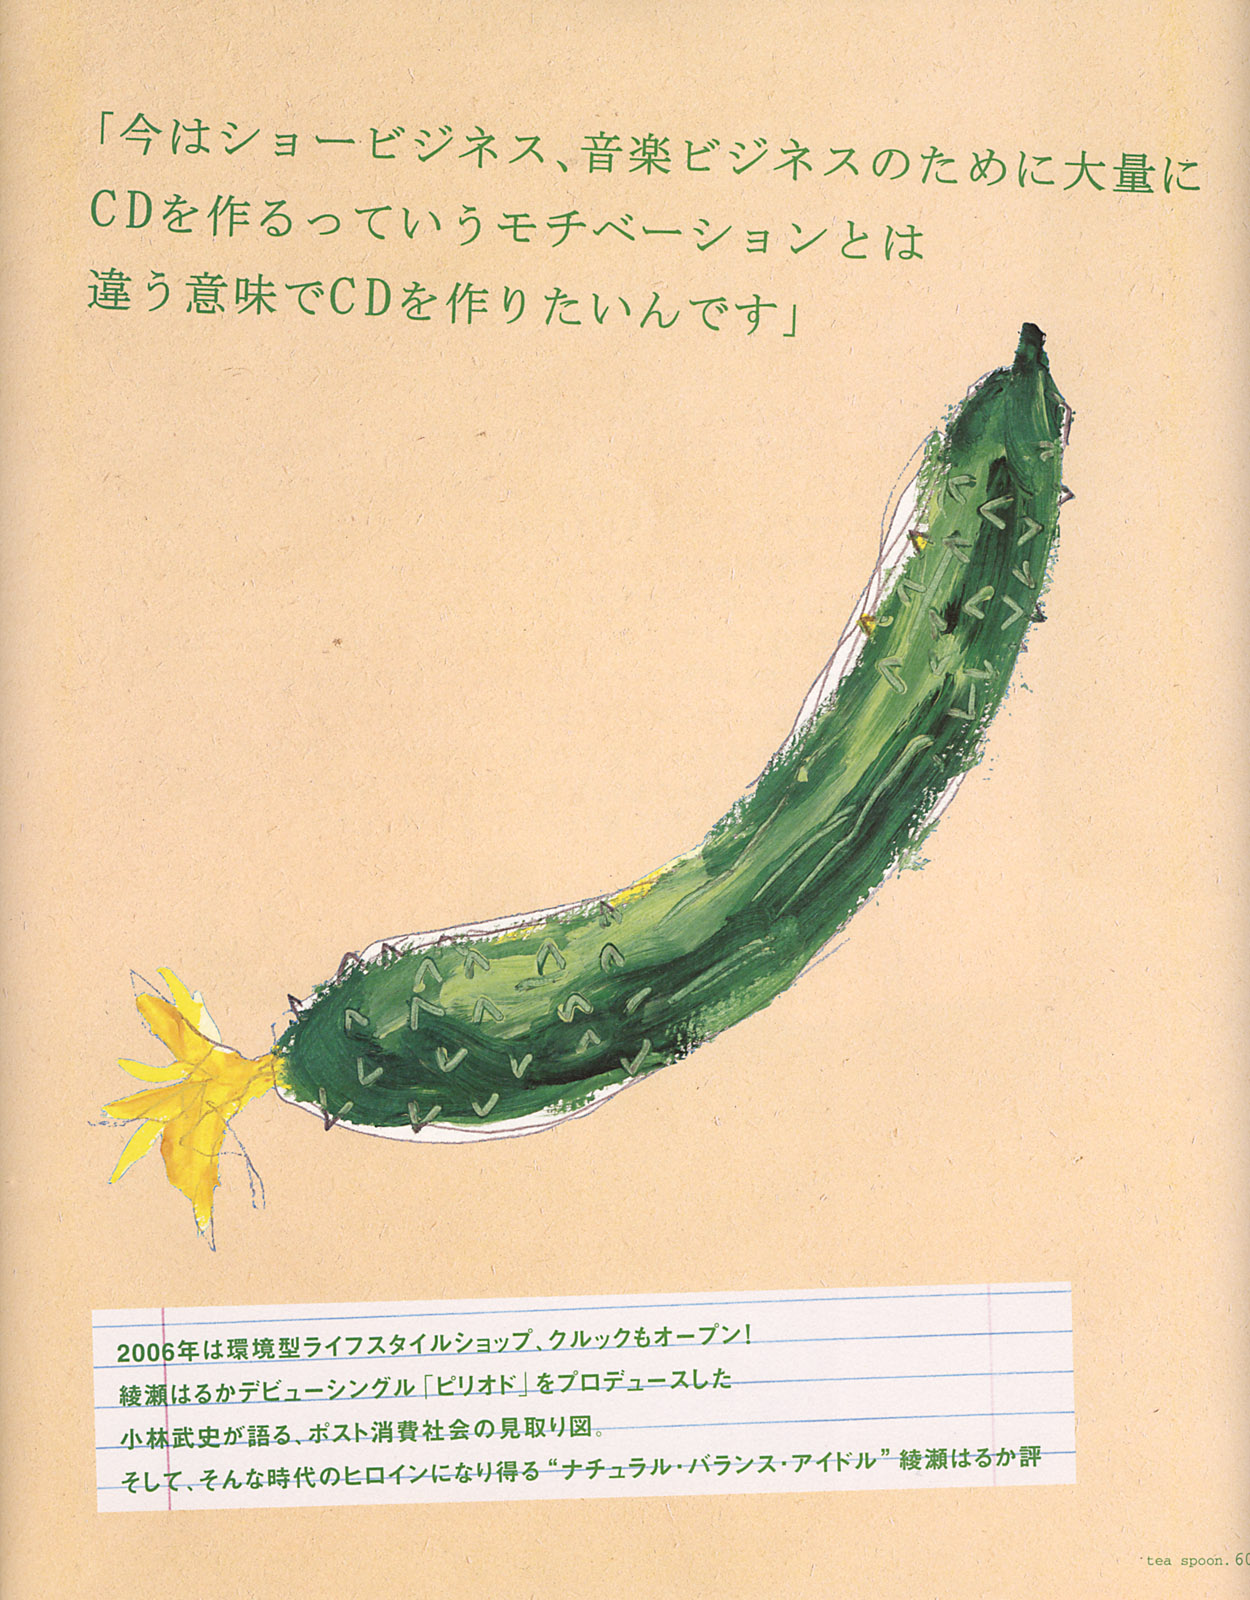 「今はショービジネス、音楽ビジネスのために大量に
CDを作るっていうモチベーションとは
違う意味でCDを作りたいんです」
2006年は環境型ライフスタイルショップ、クルックもオープン!
綾瀬はるかデビューシングル「ピリオド」をプロデュースした
小林武史が語る、ポスト消費社会の見取り図。
そして、そんな時代のヒロインになり得る“ナチュラル・バランス・アイドル”綾瀬はるか評
tea spoon. 60